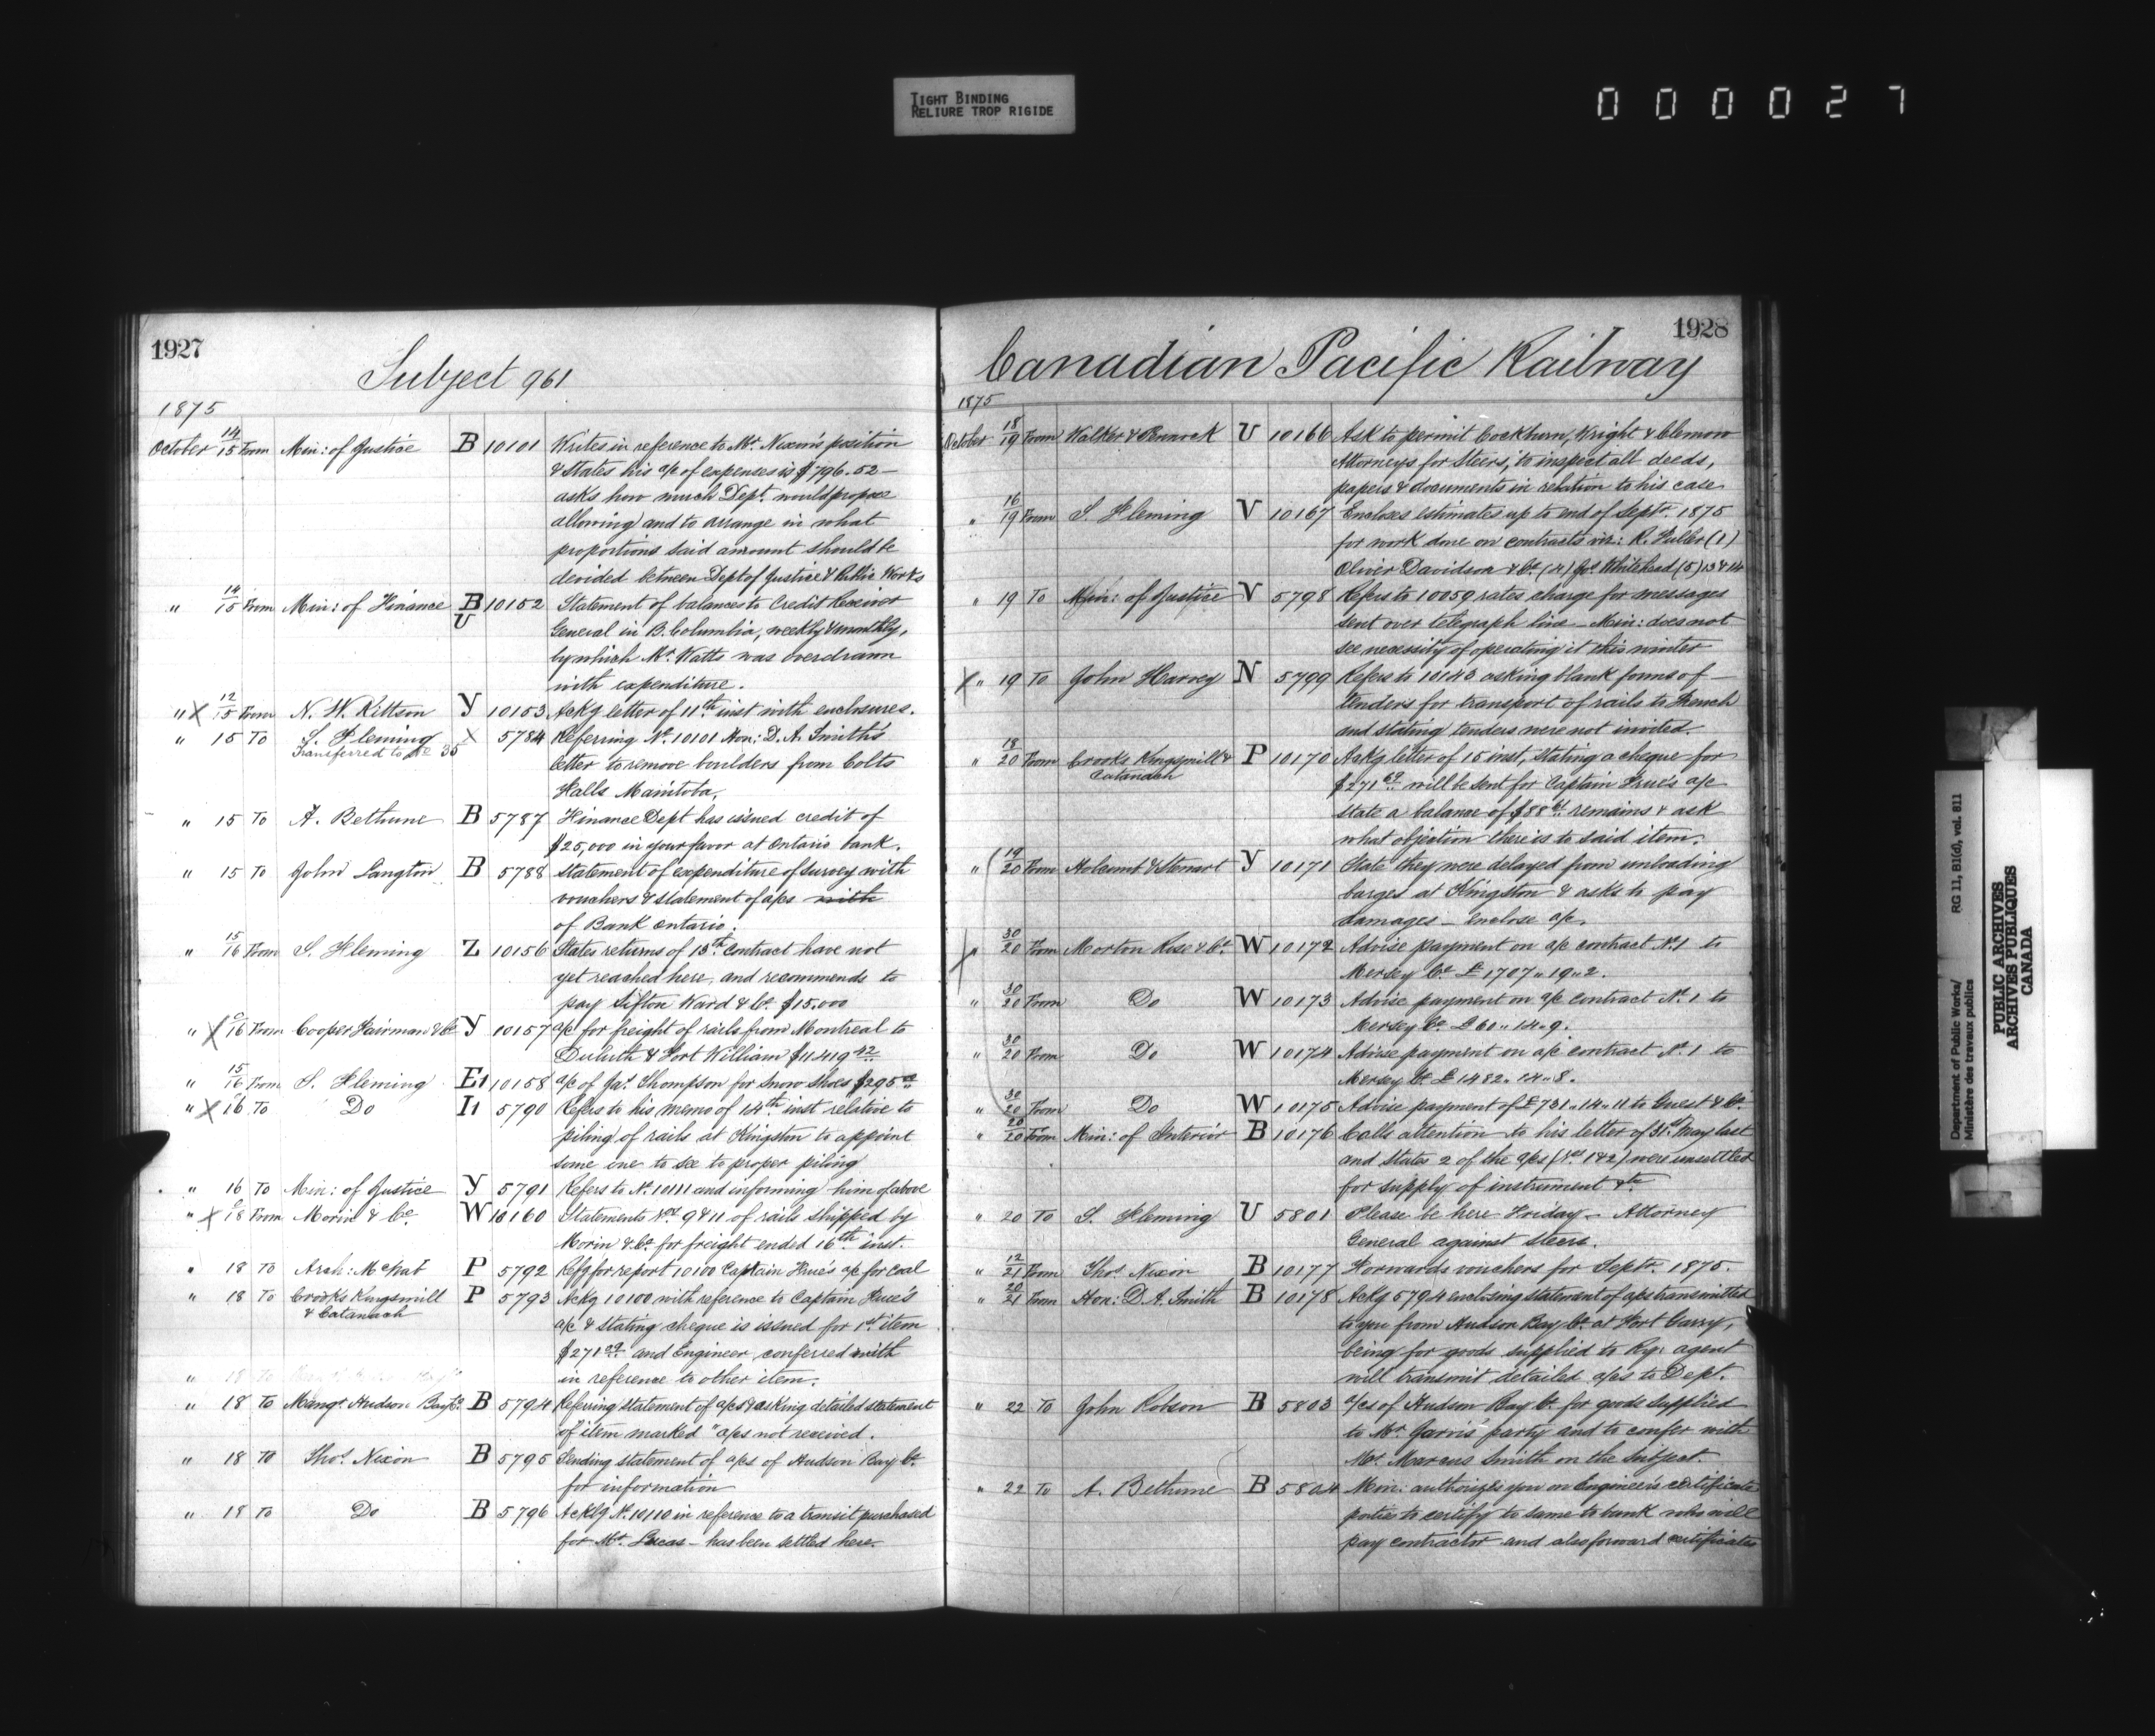 TIGHT BINDING
RELIURE TROP RIGIDE
000027
1927
Subject 961
1875
October 14/15 From Min: of Justice B 10101 Writes in reference to Mr. Nixon's position
& States his a/c of expenses is $796.52 —
asks how much Dept. would propose
allowing and to arrange in what
proportions said amount should be
devided between Dept of Justice & Public Works
" 14/15 From Min: of Finance B U 10152 Statement of balances to Credit Receiver
General in B. Columbia, weekly & monthly,
by which Mr. Watts was overdrawn
with expenditure.
" X 12/15 From N. W. Kittson Y 10153 Ackg letter of 11th inst with enclosures.
" 15 To S. Fleming X 5784 Referring No. 10101 Hon: D. A. Smith's
Transferred to No 35
letter to remove boulders from Colts
Falls Manitoba.
" 15 To A. Bethune B 5787 Finance Dept has issued credit of
$25,000 in your favor at Ontario bank.
" 15 To John Langton B 5788 Statement of expenditure of survey with
vouchers & statement of a/cs with
of Bank Ontario.
" 15/16 From S. Fleming Z 10156 States returns of 13th contract have not
yet reached here, and recommends to
pay Sifton Ward & Co. $15.000
" X 16 From Cooper Fairman & Co Y 10157 a/c for freight of rails from Montreal to
Duluth & Fort William $11419 42
" 15/16 From S. Fleming E1 10158 a/c of Jas. Thompson for Snow Shoes $295
" X 16 To Do I1 5790 Refers to his memo of 14th inst relative to
piling of rails at Kingston to appoint
some one to see to proper piling
" 16 To Min: of Justice Y 5791 Refers to No. 10111 and informing him of above
" X 18 From Morin & Co. W 10160 Statements Nos. 9 & 11 of rails shipped by
Morin & Co. for freight ended 16th inst.
" 18 To Arch: McNab P 5792 Refg for report 10100 Captain Frue's a/c for Coal
" 18 To Crooks Kingsmill P 5793 Ackg 10100 with reference to Captain Frue's
& Catanach
a/c & stating cheque is issued for 1st item
$271 and Engineer conferred with
in reference to other item.
" 18 To
" 18 To Mangr Hudson Bay Co. B 5794 Referring statement of a/cs & asking detailed statement
of item marked "a/cs not received.
" 18 To Thos. Nixon B 5795 Sending statement of a/cs of Hudson Bay Co.
for information
" 18 To Do B 5796 Acklg No. 10110 in reference to a transit purchased
for Mr. Lucas — has been settled here.
1928
Canadian Pacific Railway
1875
October 18/19 From Walker & U 10166 Ask to permit Cockburn, Wright & Clemow
Attorneys for Steers, to inspect all deeds,
papers & documents in relation to his case
" 16/19 From S. Fleming V 10167 Encloses estimates up to end of Sept. 1875
for work done on contracts viz: R. Fuller (1)
Oliver Davidson & Co. (4) Jos. Whitehead (5) 13 & 14
" 19 To Min: of Justice V 5798 Refers to 10059 rates charge for messages
sent over telegraph line — Min: does not
see necessity of operating it this winter
X " 19 To John Harvey N 5799 Refers to 10143 asking blank forms of —
tenders for transport of rails to French
and stating tenders were not invited.
" 18/20 From Crooks Kingsmill & P 10170 Ackg letter of 15 inst, stating a cheque for
Catanach
$271 will be sent for Captain Frue's a/c
State a balance of $88 remains & ask
what objection there is to said item.
" 19/20 From Holcomb & Stewart Y 10171 State they were delayed from unloading
barges at Kingston & asks to pay
damages — Enclose a/c.
X 30/20 From Morton Rose & Co. W 10172 Advise payment on a/c contract No. 1 to
Mersey Co. £1707.. 19.. 2.
" 30/20 From Do W 10173 Advise payment on a/c contract No. 1 to
Mersey Co. £60.. 14.. 9.
" 30/20 From Do W 10174 Advise payment on a/c contract No. 1 to
Mersey Co. £1482.. 14.. 8.
" 30/20 From Do W 10175 Advise payment of £731.. 14.. 11 to Guest & Co.
" 20/20 From Min: of Interior B 10176 Calls attention to his letter of 31st May last
and States 2 of the a/cs (Nos 1 & 2) were unsettled
for supply of instrument &c
" 20 To S. Fleming U 5801 Please be here Friday — Attorney
General against Steers.
" 12/21 From Thos. Nixon B 10177 Forwards vouchers for Sept. 1875.
" 20/21 From Hon: D. A. Smith B 10178 Ackg 5794 enclosing statement of a/cs transmitted
to you from Hudson Bay Co. at Fort Garry,
being for goods supplied to Ry: agent
will transmit detailed a/cs to Dept.
" 22 To John Robson B 5803 a/cs of Hudson Bay Co. for goods supplied
to Mr. Jarvis' party and to confer with
Mr. Marcus Smith on the subject.
" 22 To A. Bethune B 5804 Min: authorizes you on Engineer's certificate
parties to certify to same to bank who will
pay contractor and also forward certificates
Department of Public Works/
Ministère des travaux publics
RG 11, B1(d), vol. 811
PUBLIC ARCHIVES
ARCHIVES PUBLIQUES
CANADA